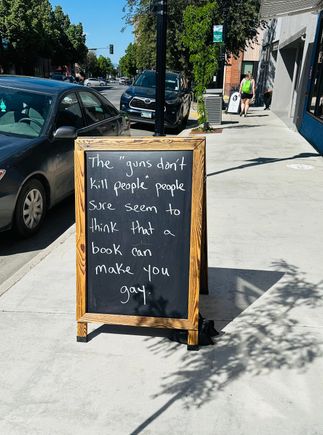 The "guns don't
kill people" people
sure seem to
think that a
book can
make you
gay.